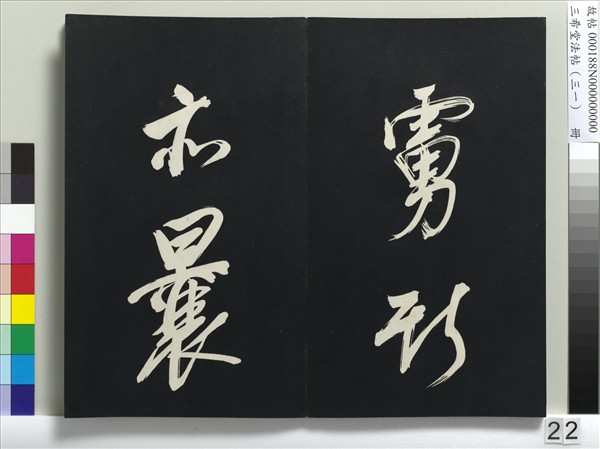 亦曩
故帖 000188N000000000
三希堂法帖（三一） 冊
22